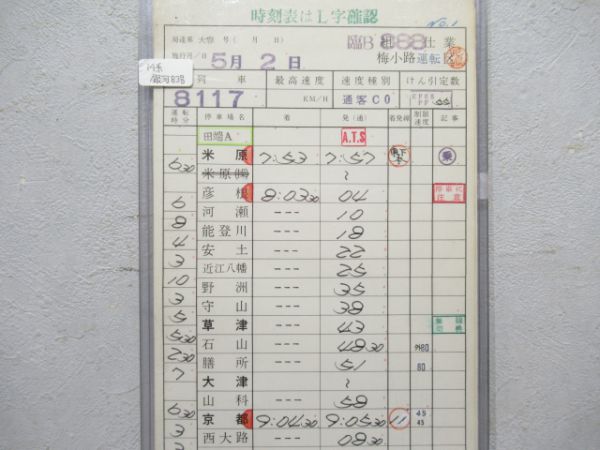 時刻表はL字確認
No.1
局達乗 大鉄 号( 月 日)
臨B 888 仕業
施行月/日 5月2日
梅小路運転区
列車 最高速度 速度種別 けん引定数
8117 KM/H 通客C0
運転時分 停車場名 着 発(通) 着発線 制限速度 記事
田端A A.T.S
米原 7:53 7:57 乗
6 30 米原(操) 〜
彦根 8:03 30 04 停車駅注意
6 河瀬 --- 10
8 能登川 --- 18
4 安土 --- 22
3 近江八幡 --- 25
10 野洲 --- 35
3 守山 --- 38
5 草津 --- 43
5 30 石山 --- 48 30 80
2 30 膳所 --- 51 80
7 大津 〜
山科 --- 58
6 30 京都 9:04 30 9:05 30 11 45 45
3 西大路 --- 08 30
3